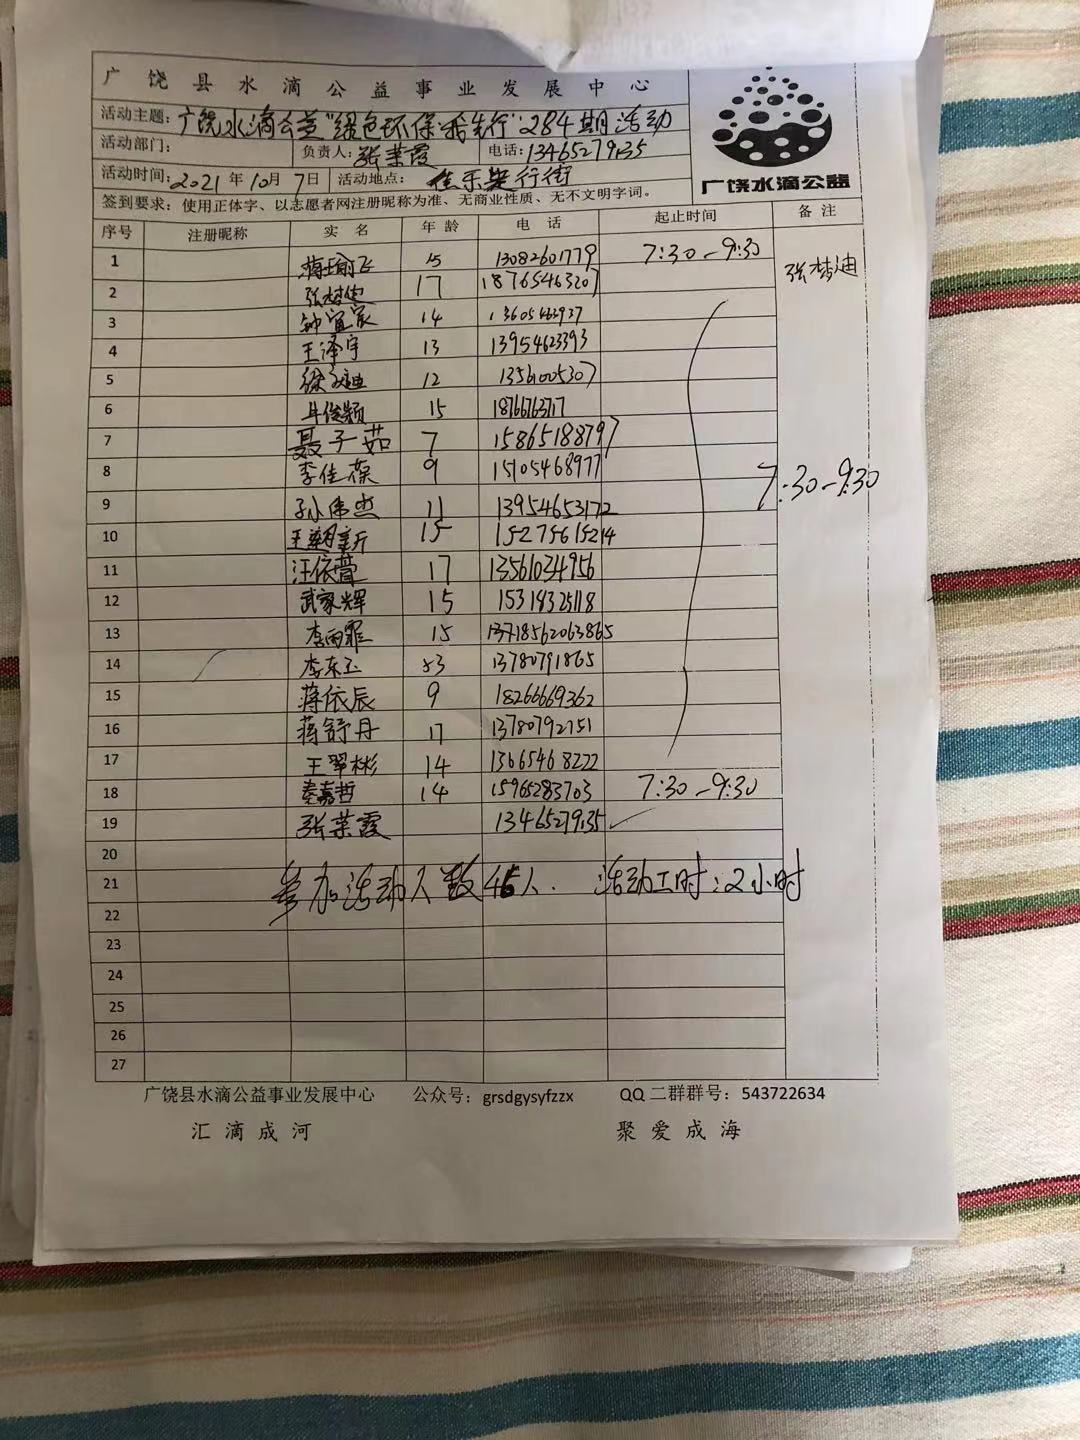 广饶县水滴公益事业发展中心
活动主题：广饶水滴公益“绿色环保·我先行”284期活动
活动部门： 负责人：张荣霞 电话：13465279135
活动时间：2021年10月7日 活动地点： 步行街
签到要求：使用正体字、以志愿者网注册昵称为准、无商业性质、无不文明字词。
广饶水滴公益
序号 注册昵称 实 名 年 龄 电 话 起止时间 备 注
1 15 13082601779 7:30-9:30 张梦迪
2 17 18765463207
3 钟宜家 14 13605463937
4 王泽宇 13 13954623393
5 12 13561005307
6 15 18766763717
7 聂子茹 7 15865188797
8 李佳葆 9 15105468977 7:30-9:30
9 孙伟杰 11 13954653172
10 15 15275615214
11 汪依萱 17 13561034956
12 武家辉 15 15318325118
13 李雨霏 15 13718562063865
14 李东玉 53 13780791865
15 蒋依辰 9 18266669362
16 蒋舒丹 17 13780792151
17 王翠彬 14 13665468222
18 秦嘉哲 14 15965283703 7:30-9:30
19 张荣霞 13465279135
20
21 参加活动人数 人. 活动工时：2小时
22
23
24
25
26
27
广饶县水滴公益事业发展中心 公众号：grsdgysyfzzx QQ二群群号：543722634
汇滴成河 聚爱成海